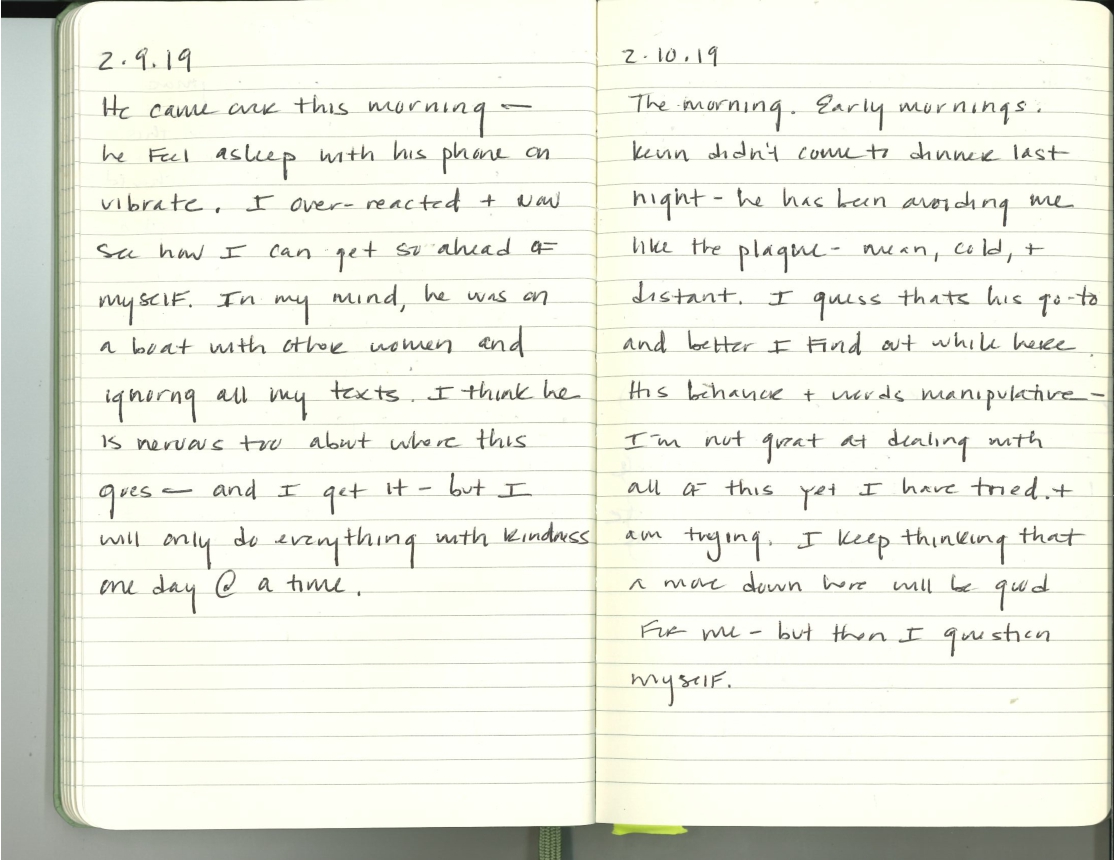 2.9.19
He came over this morning –
he Fell asleep with his phone on
vibrate. I over-reacted + now
see how I can get so ahead oF
myselF. In my mind, he was on
a boat with other women and
ignorng all my texts. I think he
is nervous too about where this
goes – and I get it – but I
will only do everything with kindness
one day @ a time.
2.10.19
The morning. Early mornings.
Kevin didn't come to dinner last
night – he has been avoiding me
like the plague – mean, cold, +
distant. I guess thats his go-to
and better I Find out while here.
His behavior + words manipulative –
I'm not great at dealing with
all oF this yet I have tried +
am trying. I keep thinking that
a move down here will be good
For me – but then I question
myselF.